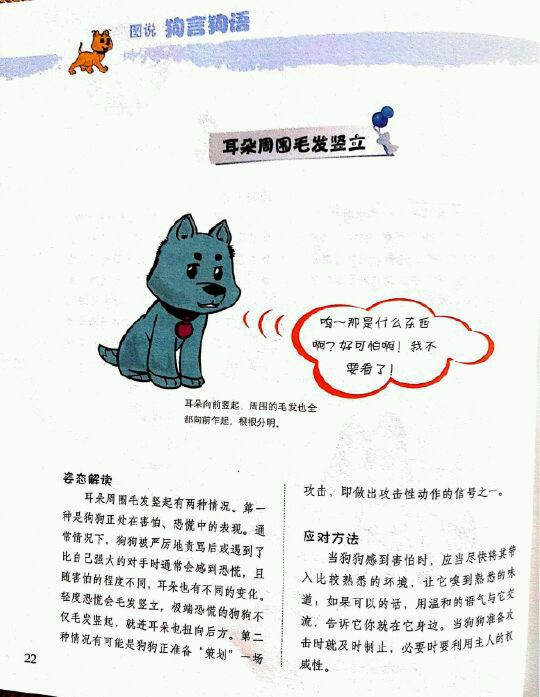 图说 狗言狗语
耳朵周围毛发竖立
呜～那是什么东西
啊？好可怕啊！我不
要看了！
耳朵向前竖起，周围的毛发也全
部向前乍起，根根分明。
姿态解读
耳朵周围毛发竖起有两种情况。第一
种是狗狗正处在害怕、恐慌中的表现。通
常情况下，狗狗被严厉地责骂后或遇到了
比自己强大的对手时通常会感到恐慌，且
随害怕的程度不同，耳朵也有不同的变化。
轻度恐慌会毛发竖立，极端恐慌的狗狗不
仅毛发竖起，就连耳朵也扭向后方。第二
种情况有可能是狗狗正准备“策划”一场
攻击，即做出攻击性动作的信号之一。
应对方法
当狗狗感到害怕时，应当尽快将其带
入比较熟悉的环境，让它嗅到熟悉的味
道；如果可以的话，用温和的语气与它交
流，告诉它你就在它身边。当狗狗准备攻
击时就及时制止，必要时要利用主人的权
威性。
22